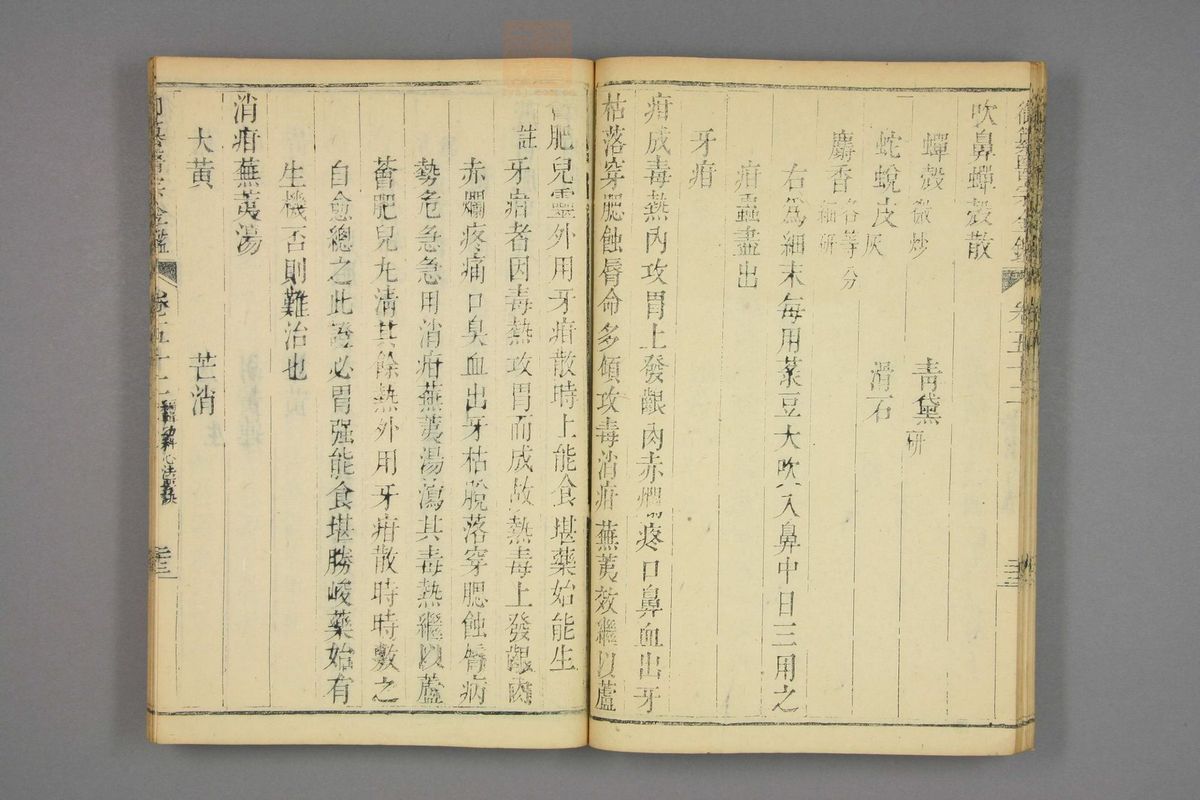 吹鼻蟬殼散
蟬殼 微炒 青黛 研
蛇蛻皮 灰 滑石
麝香 各等分 細研
右為細末每用菉豆大吹入鼻中日三用之
疳蟲盡出
牙疳
疳成毒熱內攻胃上發齦肉赤爛疼口鼻血出牙
枯落穿腮蝕脣命多傾攻毒消疳蕪荑效繼以蘆
薈肥兒靈外用牙疳散時上能食堪藥始能生
註 牙疳者因毒熱攻胃而成故熱毒上發齦肉
赤爛疼痛口臭血出牙枯脫落穿腮蝕脣病
勢危急急用消疳蕪荑湯瀉其毒熱繼以蘆
薈肥兒丸清其餘熱外用牙疳散時時敷之
自愈總之此證必胃強能食堪勝峻藥始有
生機否則難治也
消疳蕪荑湯
大黃 芒消
御纂醫宗金鑑 卷五十二 幼科心法要訣